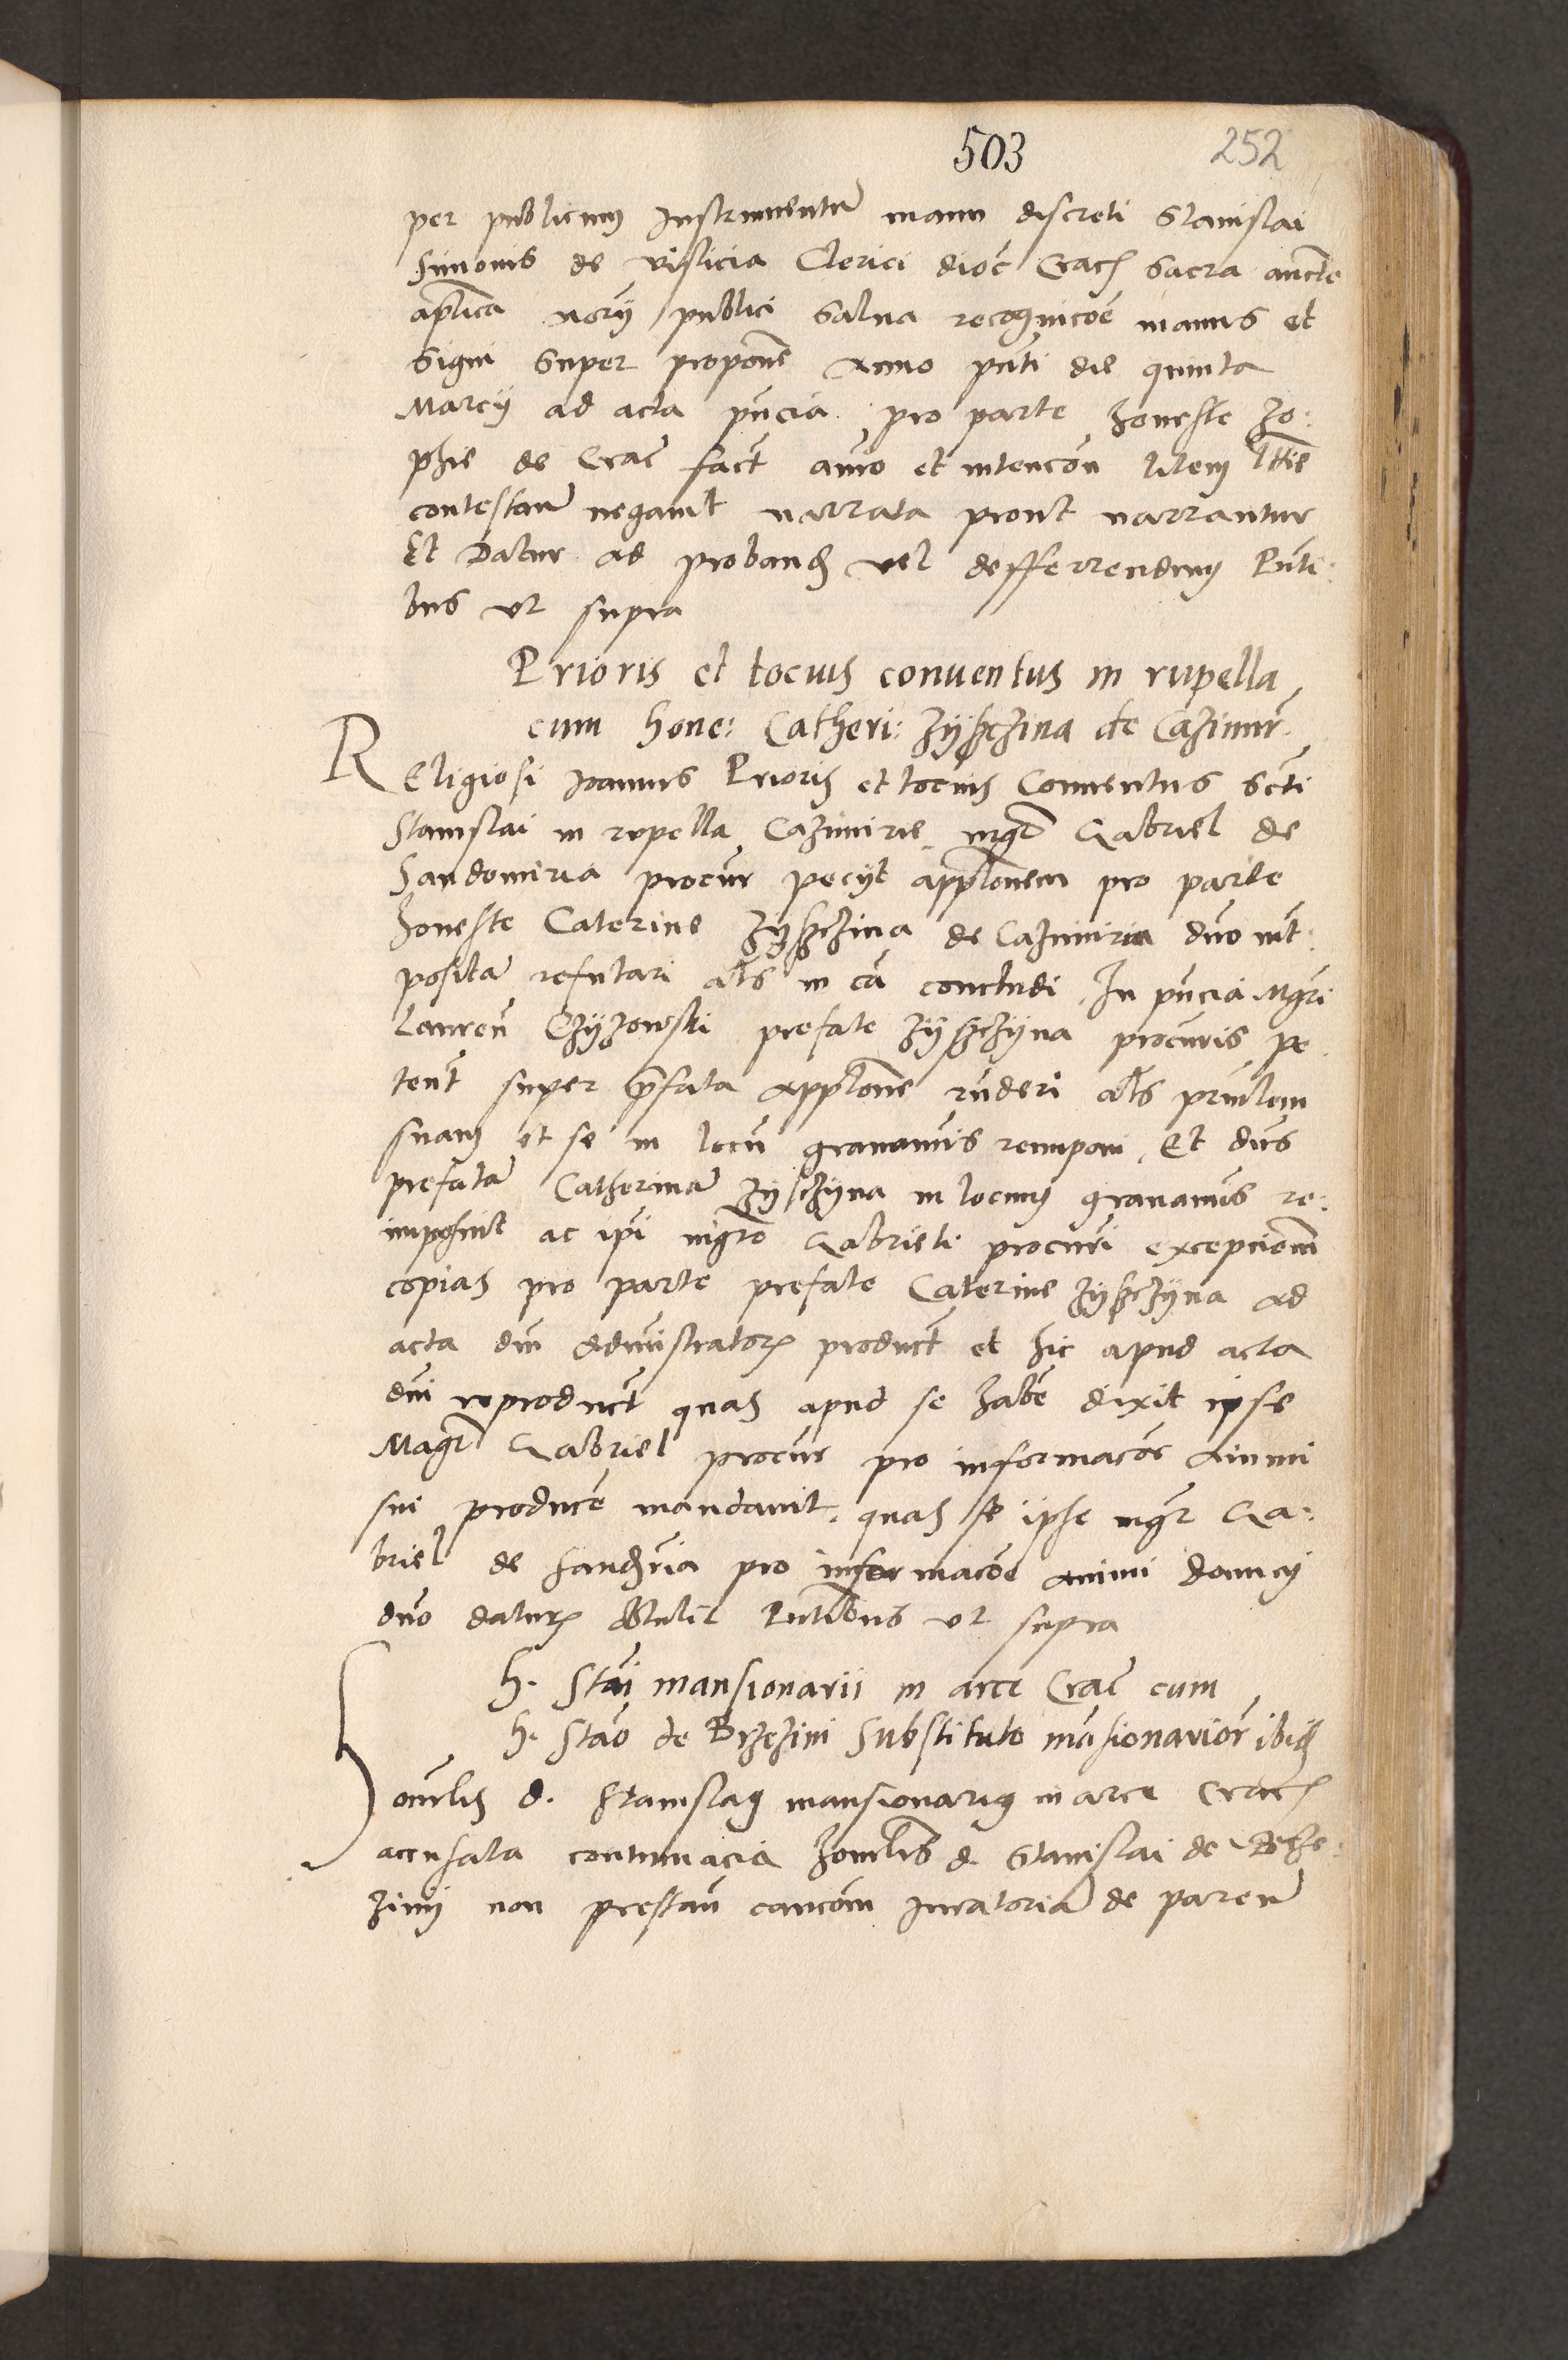 503 252
per publicum Instrumentũ manu discreti Stanislai
Simonis de vislicia Clerici dioc̃ Crac̃ Sacra aucte
aplica nory publici Salua recognicoe manus et
Signi Super propone Anno pnti die quinta
Marcy ad acta pncia pro parte honeste Zo:
phie de Crac̃ fact animo et intencon litem
contestan negauit narrata prout narrantur
Et Datur ad proband vel defferrendum Pnti:
bus vt supra
Prioris et tocius conuentus in rupella
cum hone: Catheri: Zyszczina de Cazimir
Religiosi Joannis Prioris et tocius Conuentus Scti
Stanislai in rupella Cazimirie mgr Gabriel de
Sandomiria procur pecyt applonem pro parte
honeste Caterine Zyszczina de Cazimiria dno int:
positã refutari als in ca concludi In pncia Mgri
Lauren Czyzowski prefate Zyszczyna procuris pe
tent super prefata applone rñderi als
suam et se in locũ grauaminis reimponi, Et dns
prefatã Catherinã Zyszczyna in locum grauaminis re:
imposuit ac ipi mgro Gabrieli procuri excepcionum
copias pro parte prefate Caterine Zyszczyna ad
acta dni Administratoris product et hic apud acta
dni reproduct quas apud se habe dixit ipse
Magr Gabriel procur pro informacoe Animi
sui produce mandauit, quas se ipse mgr Ga:
briel de Sandria pro informacoe animi
dno daturũ obtulit Pntibus vt supra
h. Stai mansionarii in arce Crac̃ cum
h. Stao de Brzezini Substituto masionarior ibid
Honrlis d. Stanislaus mansionarius in arce Crac̃
accusata contumacia honrlis d. Stanislai de Brze:
ziny non prestan caucom Iuratoriã de paren